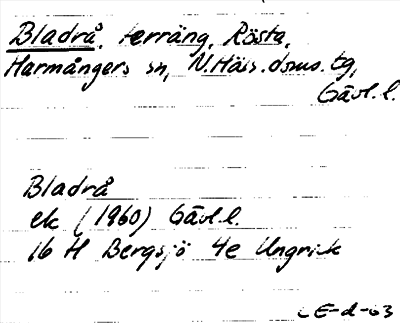 Bladrå, terräng, Rösta,
Harmångers sn, N.Häls.doms.tg,
Gävl.l.
Bladrå
ek (1960) Gävl.l.
16 H Bergsjö 4e Ungrick